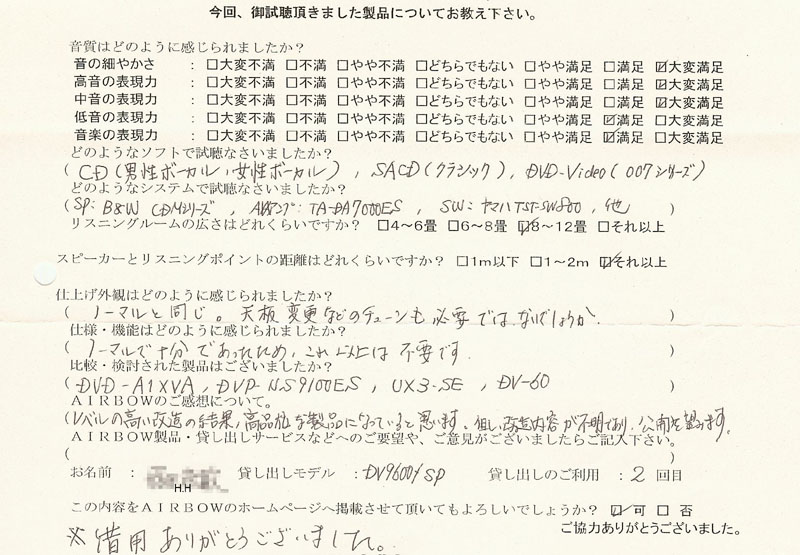 今回、御試聴頂きました製品についてお教え下さい。
音質はどのように感じられましたか？
音の細やかさ ：□大変不満 □不満 □やや不満 □どちらでもない □やや満足 □満足 ☑大変満足
高音の表現力 ：□大変不満 □不満 □やや不満 □どちらでもない □やや満足 □満足 ☑大変満足
中音の表現力 ：□大変不満 □不満 □やや不満 □どちらでもない □やや満足 □満足 ☑大変満足
低音の表現力 ：□大変不満 □不満 □やや不満 □どちらでもない □やや満足 ☑満足 □大変満足
音楽の表現力 ：□大変不満 □不満 □やや不満 □どちらでもない □やや満足 ☑満足 □大変満足
どのようなソフトで試聴なさいましたか？
( CD（男性ボーカル、女性ボーカル）, SACD（クラシック）, DVD-Video（007シリーズ）)
どのようなシステムで試聴なさいましたか？
( SP: B&W CDMシリーズ , AVアンプ: TA-DA7000ES , SW: ヤマハYST-SW800 , 他 )
リスニングルームの広さはどれくらいですか？ □4～6畳 □6～8畳 ☑8～12畳 □それ以上
スピーカーとリスニングポイントの距離はどれくらいですか？ □1m以下 □1～2m ☑それ以上
仕上げ外観はどのように感じられましたか？
( ノーマルと同じ。天板変更などのチューンも必要ではないでしょうか. )
仕様・機能はどのように感じられましたか？
( ノーマルで十分であったため、これ以上は不要です. )
比較・検討された製品はございましたか？
( DVD-A1XVA , DVP-NS9100ES , UX3-SE , DV-60 )
AIRBOWのご感想について。
(レベルの高い改造の結果、高品位な製品になっていると思います。但し、改造内容が不明であり、公開を望みます。
AIRBOW製品・貸し出しサービスなどへのご要望や、ご意見がございましたらご記入下さい。
( )
お名前 ： H.H 貸し出しモデル ：DV9600/SP 貸し出しのご利用 ：2 回目
この内容をAIRBOWのホームページへ掲載させて頂いてもよろしいでしょうか？ ☑可 □否
ご協力ありがとうございました。
※借用ありがとうございました。